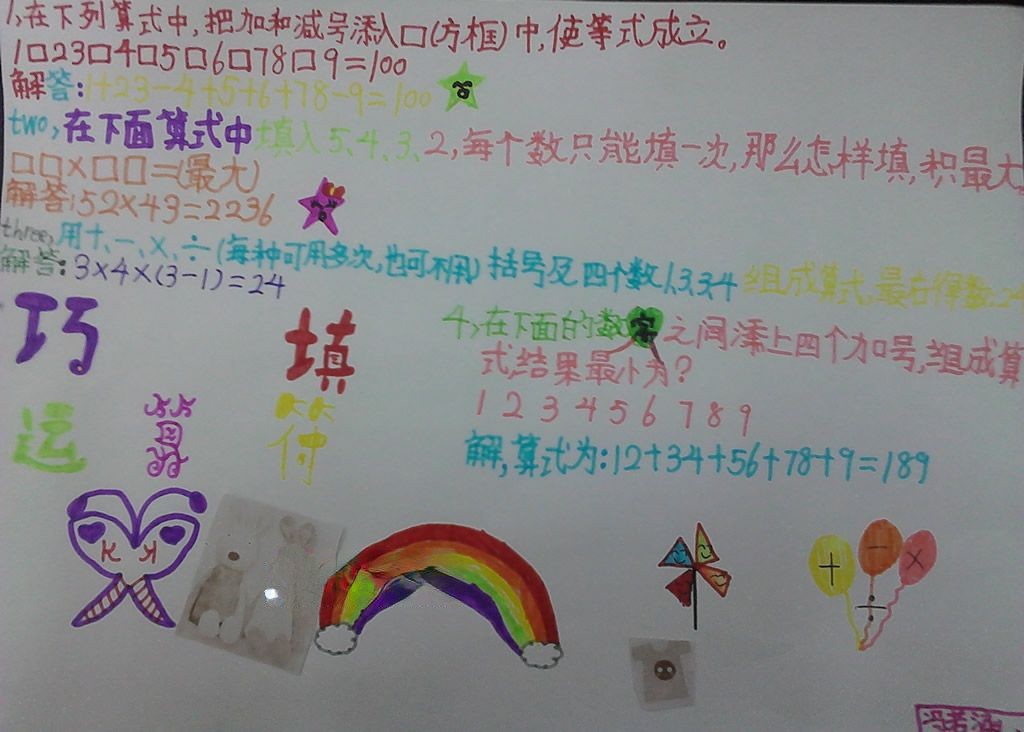 1,在下列算式中,把加和减号添入口(方框)中,使等式成立。
1□23□4□5□6□78□9=100
解答:1+23-4+5+6+78-9=100
two,在下面算式中填入5、4、3、2,每个数只能填一次,那么怎样填,积最大
□□×□□=(最大)
解答:52×43=2236
three,用+、-、×、÷(每种可用多次,也可不用)括号及四个数1,3,3,4组成算式,最后得数24
解答:3×4×(3-1)=24
4,在下面的数字之间添上四个加号,组成算
式,结果最小为?
1 2 3 4 5 6 7 8 9
解,算式为:12+34+56+78+9=189
巧 填
运 算 符
+ - × ÷